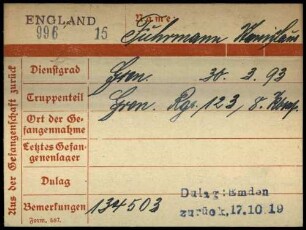 ENGLAND Name:
996 15 Fuhrmann Stanislaus
Aus der Gefangenschaft zurück
Dienstgrad Gren. 30. 3. 93
Truppenteil Gren. Rgt. 123, 8. Komp.
Ort der Ge-
fangennahme
Letztes Gefan-
genenlager
Dulag Dulag: Emden
Bemerkungen 134503 zurück, 17.10 19
Form.